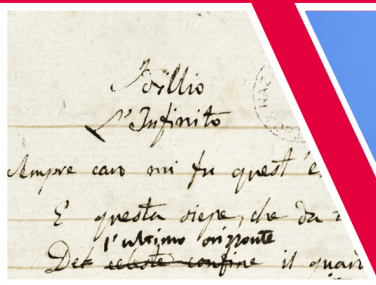 Idillio
L'Infinito
Sempre caro mi fu quest'e
E questa siepe, che da t
l'ultimo orizzonte
Del celeste confine il guar